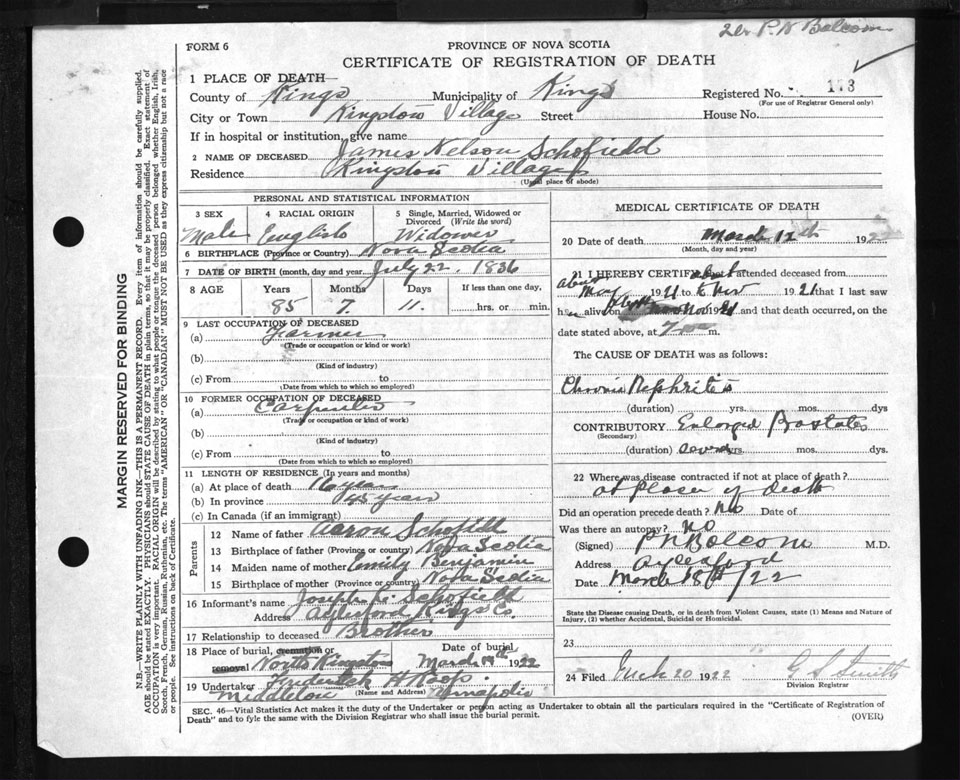 Dr P. N Balcom
FORM 6
PROVINCE OF NOVA SCOTIA
CERTIFICATE OF REGISTRATION OF DEATH
1 PLACE OF DEATH
County of Kings Municipality of Kings Registered No. 173
(For use of Registrar General only)
City or Town Kingston Village Street House No.
If in hospital or institution, give name
2 NAME OF DECEASED James Nelson Schofield
Residence Kingston Village
(Usual place of abode)
PERSONAL AND STATISTICAL INFORMATION
3 SEX 4 RACIAL ORIGIN 5 Single, Married, Widowed or Divorced (Write the word)
Male English Widower
6 BIRTHPLACE (Province or Country) Nova Scotia
7 DATE OF BIRTH (month, day and year) July 22. 1836
8 AGE Years Months Days If less than one day,
85 7 11. hrs. or min.
9 LAST OCCUPATION OF DECEASED
(a) Farmer
(Trade or occupation or kind of work)
(b)
(Kind of industry)
(c) From to
(Date from which to which so employed)
10 FORMER OCCUPATION OF DECEASED
(a) Carpenter
(Trade or occupation or kind of work)
(b)
(Kind of industry)
(c) From to
(Date from which to which so employed)
11 LENGTH OF RESIDENCE (In years and months)
(a) At place of death 16 years
(b) In province years
(c) In Canada (if an immigrant)
Parents
12 Name of father Aaron Schofield
13 Birthplace of father (Province or country) Nova Scotia
14 Maiden name of mother Emily Benjamin
15 Birthplace of mother (Province or country) Nova Scotia
16 Informant's name Joseph Schofield
Address Aylesford Kings Co.
17 Relationship to deceased Brother
18 Place of burial, cremation or Date of burial
removal North Kingston March 1922
19 Undertaker Frederick H
Middleton (Name and Address) Annapolis
MEDICAL CERTIFICATE OF DEATH
20 Date of death March 12th 192
(Month, day and year)
21 I HEREBY CERTIFY that I attended deceased from
about May 1921 to Nov 1921 that I last saw
h alive on Nov 1921 and that death occurred, on the
date stated above, at 7 m.
The CAUSE OF DEATH was as follows:
Chronic Nephritis
(duration) yrs. mos. dys
CONTRIBUTORY Enlarged Prostates
(Secondary)
(duration) yrs. mos. dys
22 Where was disease contracted if not at place of death?
at place of death
Did an operation precede death? No Date of
Was there an autopsy? No
(Signed) P N Balcom M.D.
Address Aylesford
Date March 18th/22
State the Disease causing Death, or in death from Violent Causes, state (1) Means and Nature of
Injury, (2) whether Accidental, Suicidal or Homicidal.
23
24 Filed Mch 20 1922 G S Smith
Division Registrar
SEC. 46—Vital Statistics Act makes it the duty of the Undertaker or person acting as Undertaker to obtain all the particulars required in the "Certificate of Registration of
Death" and to fyle the same with the Division Registrar who shall issue the burial permit. (OVER)
MARGIN RESERVED FOR BINDING
N.B.—WRITE PLAINLY WITH UNFADING INK—THIS IS A PERMANENT RECORD. Every item of information should be carefully supplied.
AGE should be stated EXACTLY. PHYSICIANS should STATE CAUSE OF DEATH in plain terms, so that it may be properly classified. Exact statement of
OCCUPATION is very important. RACIAL ORIGIN will be described by stating to what people or tongue the deceased person belonged whether English, Irish,
Scotch, French, German, Russian, Ruthenian, etc. The terms "AMERICAN" or "CANADIAN" MUST NOT BE USED as they express citizenship but not a race
or people. See instructions on back of Certificate.